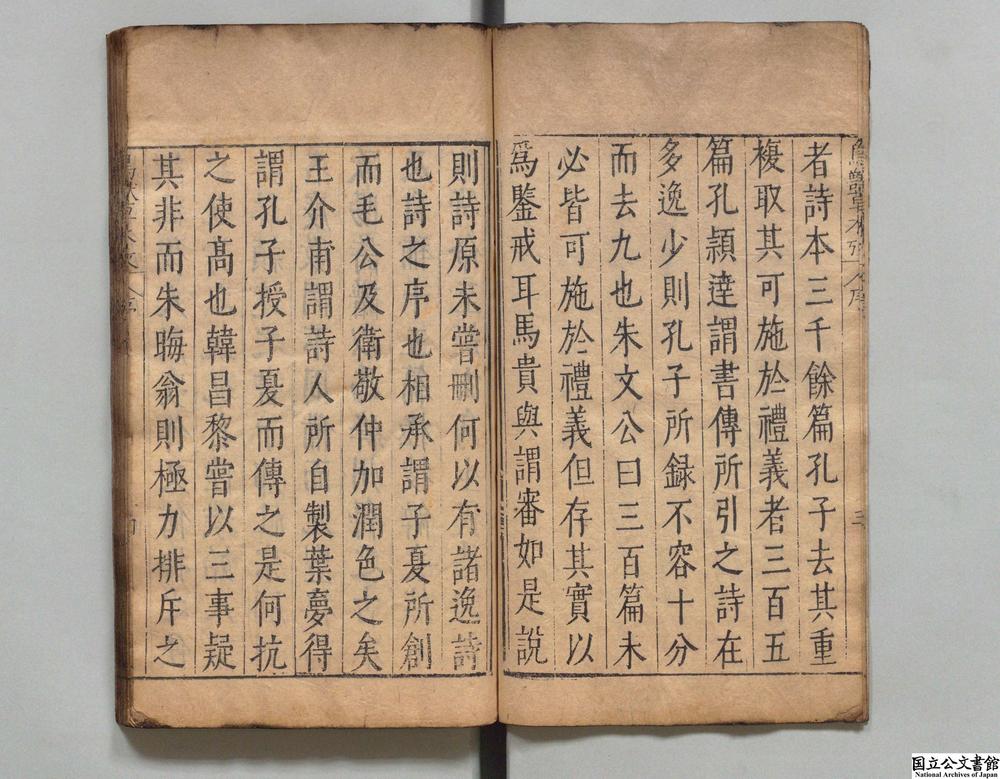 者詩本三千餘篇孔子去其重
複取其可施於禮義者三百五
篇孔穎達謂書傳所引之詩在
多逸少則孔子所録不容十分
而去九也朱文公曰三百篇未
必皆可施於禮義但存其實以
爲鑒戒耳馬貴與謂審如是説
則詩原未嘗刪何以有諸逸詩
也詩之序也相承謂子夏所創
而毛公及衛敬仲加潤色之矣
王介甫謂詩人所自製葉夢得
謂孔子授子夏而傳之是何抗
之使髙也韓昌黎嘗以三事疑
其非而朱晦翁則極力排斥之
国立公文書館
National Archives of Japan